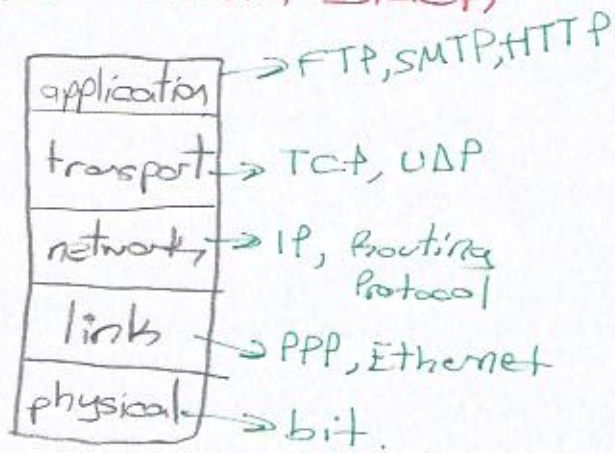 application → FTP, SMTP, HTTP
transport → TCP, UDP
network → IP, Routing
Protocol
link → PPP, Ethernet
physical → bit.